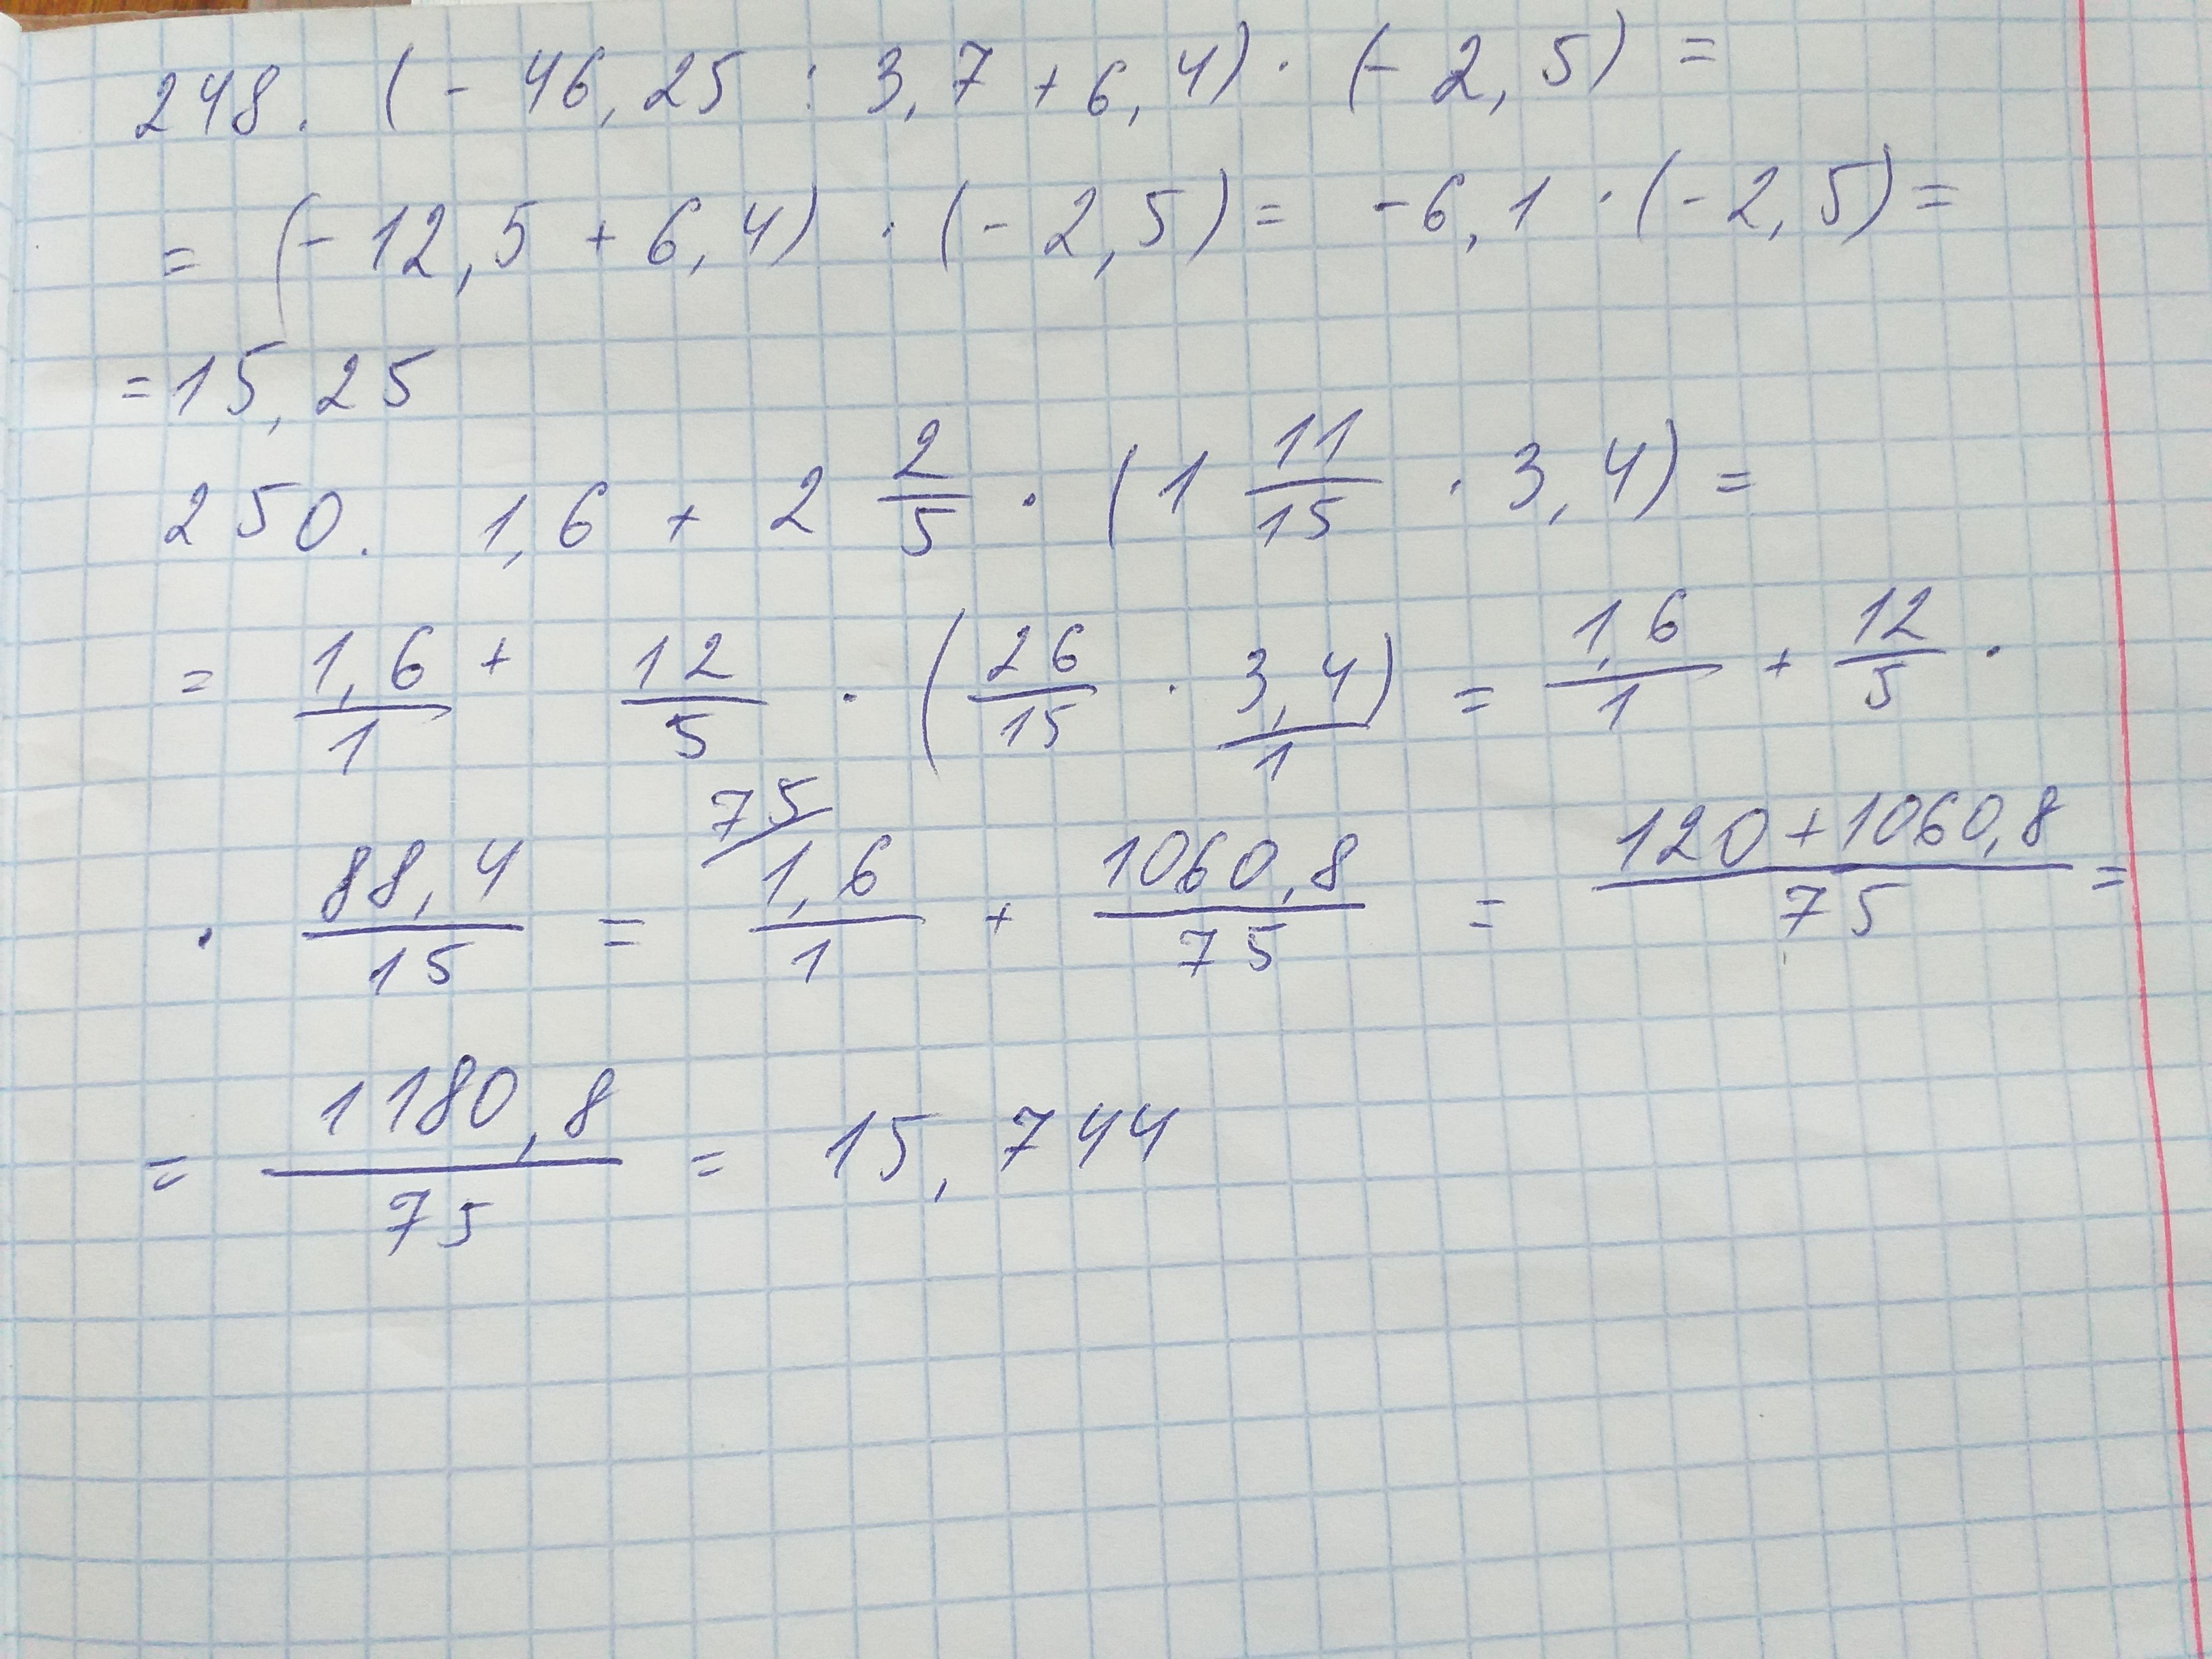 248. (- 46,25 : 3,7 + 6,4) · (- 2,5) =
= (- 12,5 + 6,4) · (- 2,5) = - 6,1 · (- 2,5) =
= 15,25
250. 1,6 + 2 2/5 · (1 11/15 · 3,4) =
= 1,6/1 + 12/5 · (26/15 · 3,4/1) = 1,6/1 + 12/5 ·
· 88,4/15 = 75/ 1,6/1 + 1060,8/75 = 120+1060,8/75 =
= 1180,8/75 = 15,744